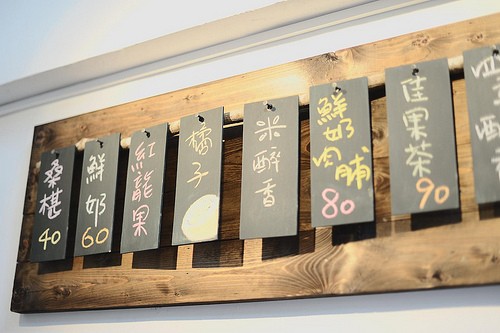 桑椹
40
鮮奶
60
紅龍果
橘子
米醉香
鮮奶肉脯
80
佳果茶
90